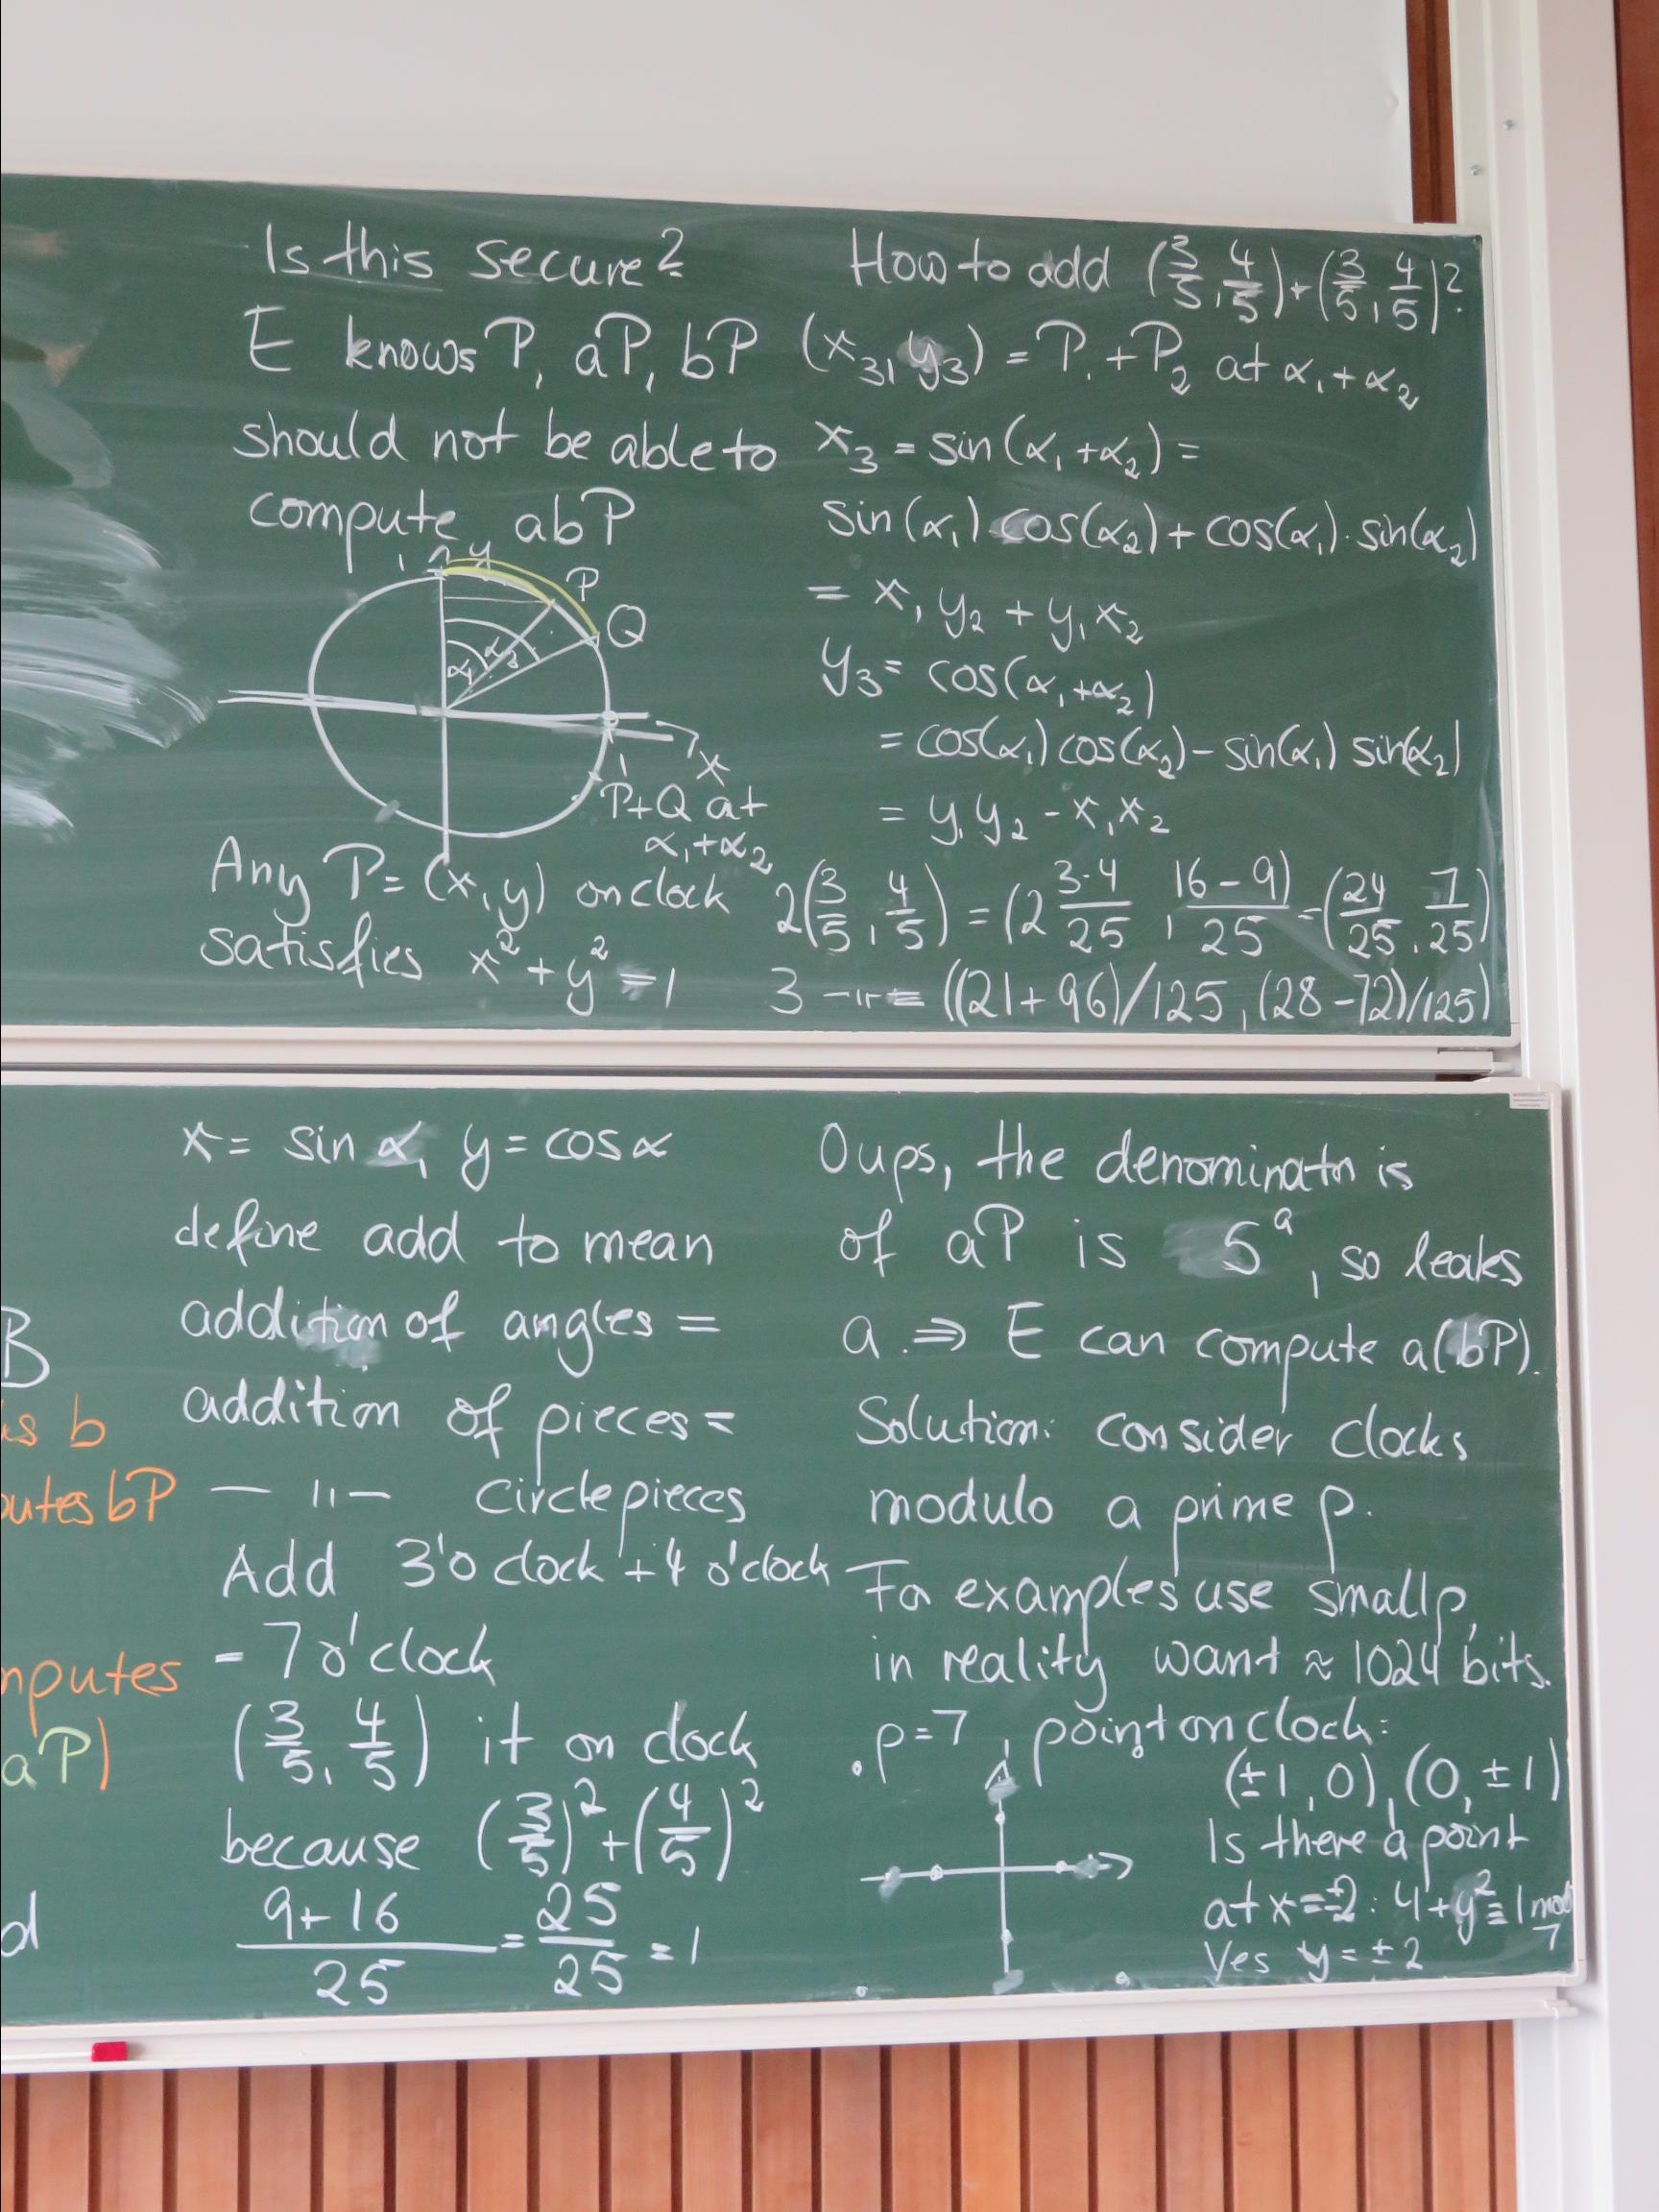 Is this secure?
E knows P, aP, bP
should not be able to
compute abP
1 y
P
Q
α₁ α₂
1 x
P+Q at
α₁+α₂
Any P=(x,y) on clock
satisfies x²+y²=1
How to add (3/5, 4/5)+(3/5, 4/5)?
(x₃, y₃) = P₁+P₂ at α₁+α₂
x₃ = sin(α₁+α₂) =
sin(α₁) cos(α₂)+cos(α₁)·sin(α₂)
= x₁y₂ + y₁x₂
y₃= cos(α₁+α₂)
= cos(α₁) cos(α₂)-sin(α₁) sin(α₂)
= y₁y₂ - x₁x₂
2(3/5, 4/5) = (2 3·4/25, 16-9/25)=(24/25, 7/25)
3 -"- = ((21+96)/125, (28-72)/125)
x= sin α, y=cosα
define add to mean
addition of angles =
addition of pieces =
— "— circle pieces
Add 3'o clock +4 o'clock
= 7 o'clock
(3/5, 4/5) it on clock
because (3/5)²+(4/5)²
9+16/25 = 25/25 = 1
Oups, the denominator is
of aP is 5ᵃ, so leaks
a. ⇒ E can compute a(bP).
Solution: consider clocks
modulo a prime p.
For examples use small p,
in reality want ≈ 1024 bits.
p=7, point on clock:
(±1, 0), (0, ±1)
Is there a point
at x=±2: 4+y²≡1 mod 7
Yes y = ±2
B
is b
putes bP
mputes
aP)
d